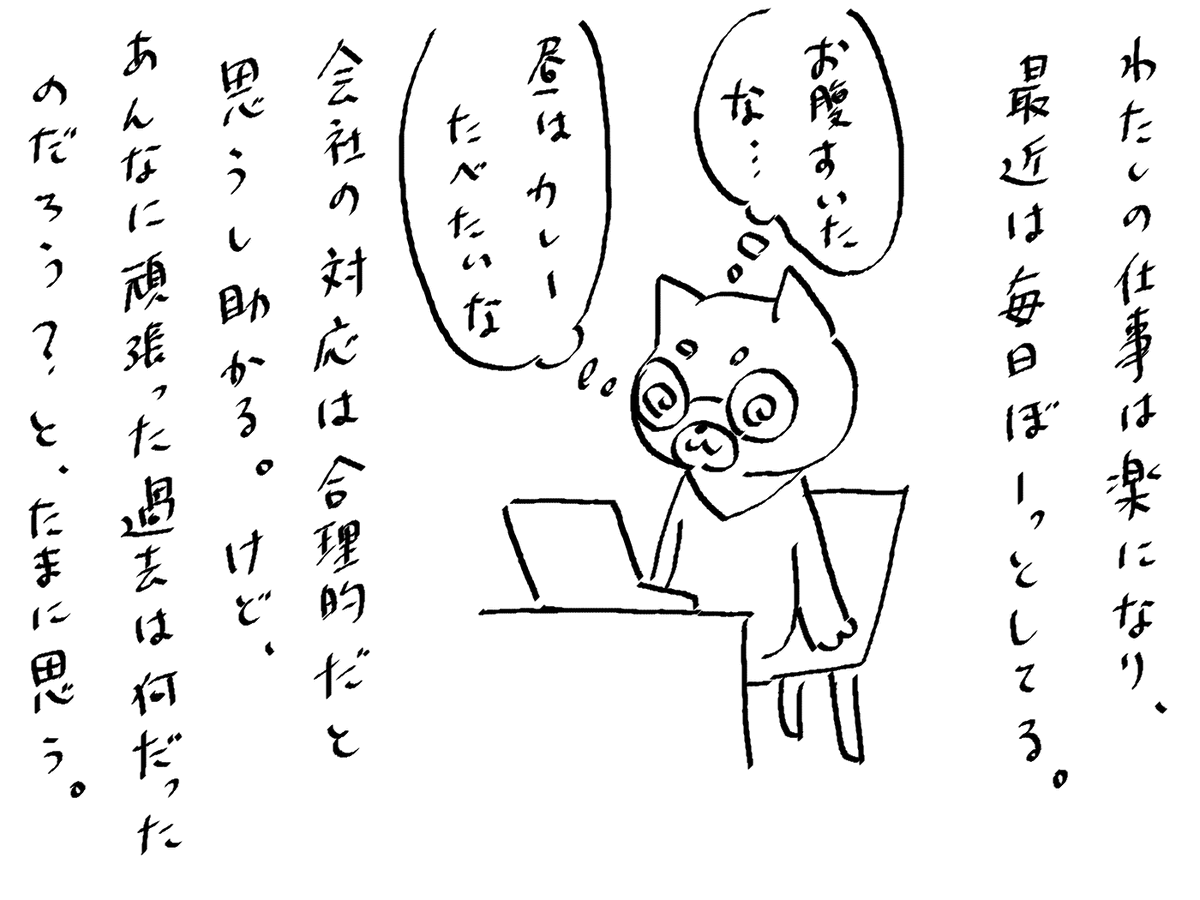 わたしの仕事は楽になり、
最近は毎日ぼーっとしてる。
お腹すいた
な…
昼はカレー
たべたいな
会社の対応は合理的だと
思うし助かる。けど、
あんなに頑張った過去は何だった
のだろう？と、たまに思う。